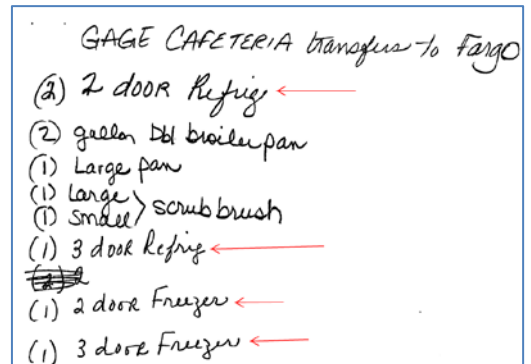 GAGE CAFETERIA transfers to Fargo
(2) 2 door Refrig
(2) gallon Dbl broiler pan
(1) Large pan
(1) Large
(1) Small > scrub brush
(1) 3 door Refrig
(1) 2 door Freezer
(1) 3 door Freezer